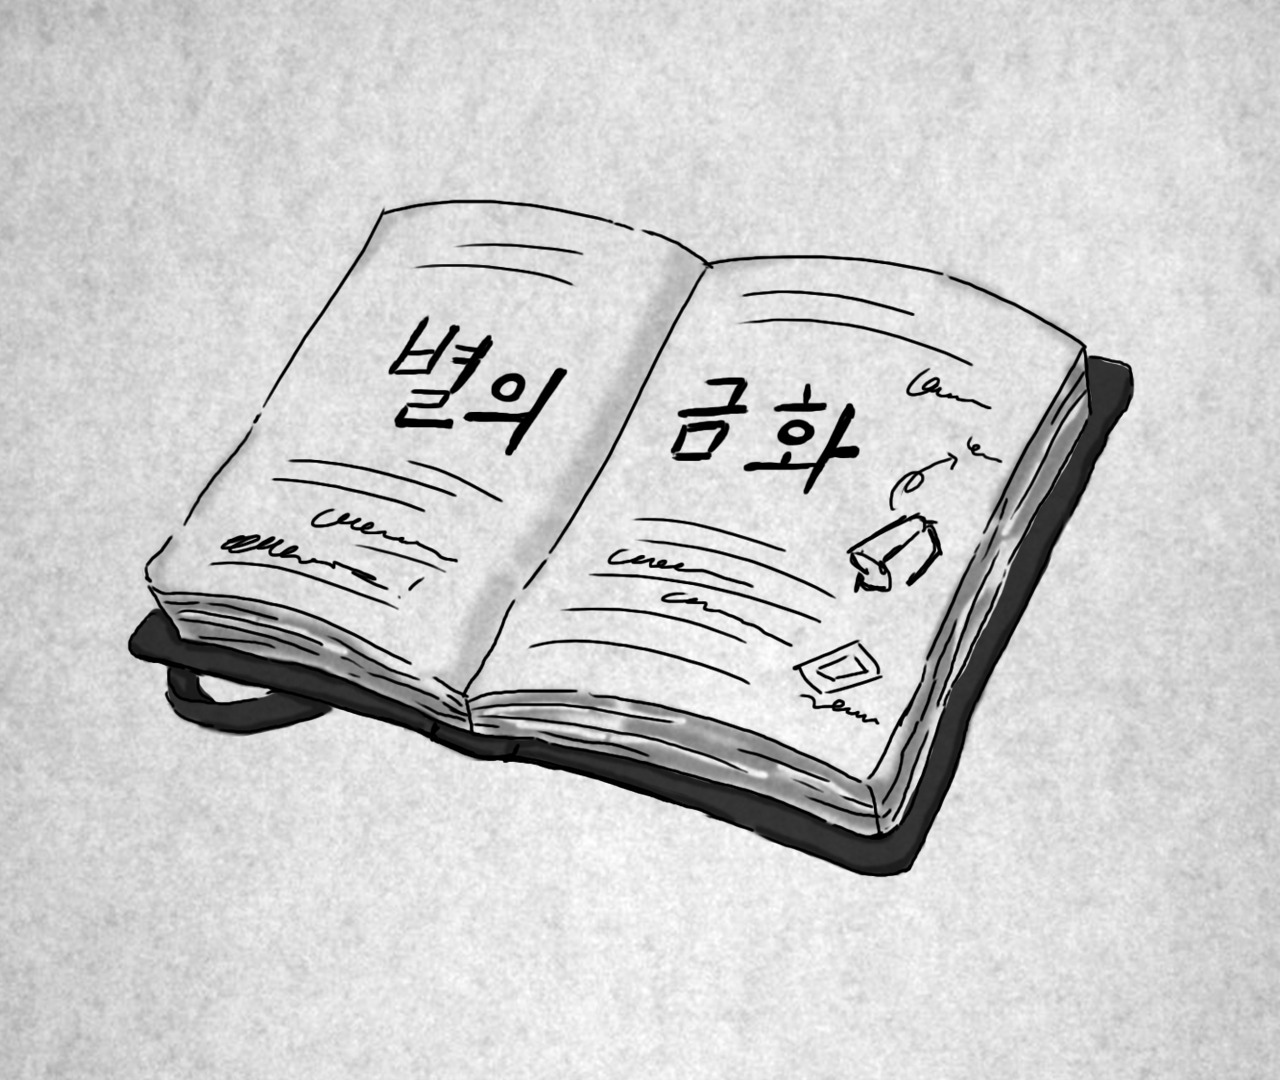 별의 금화